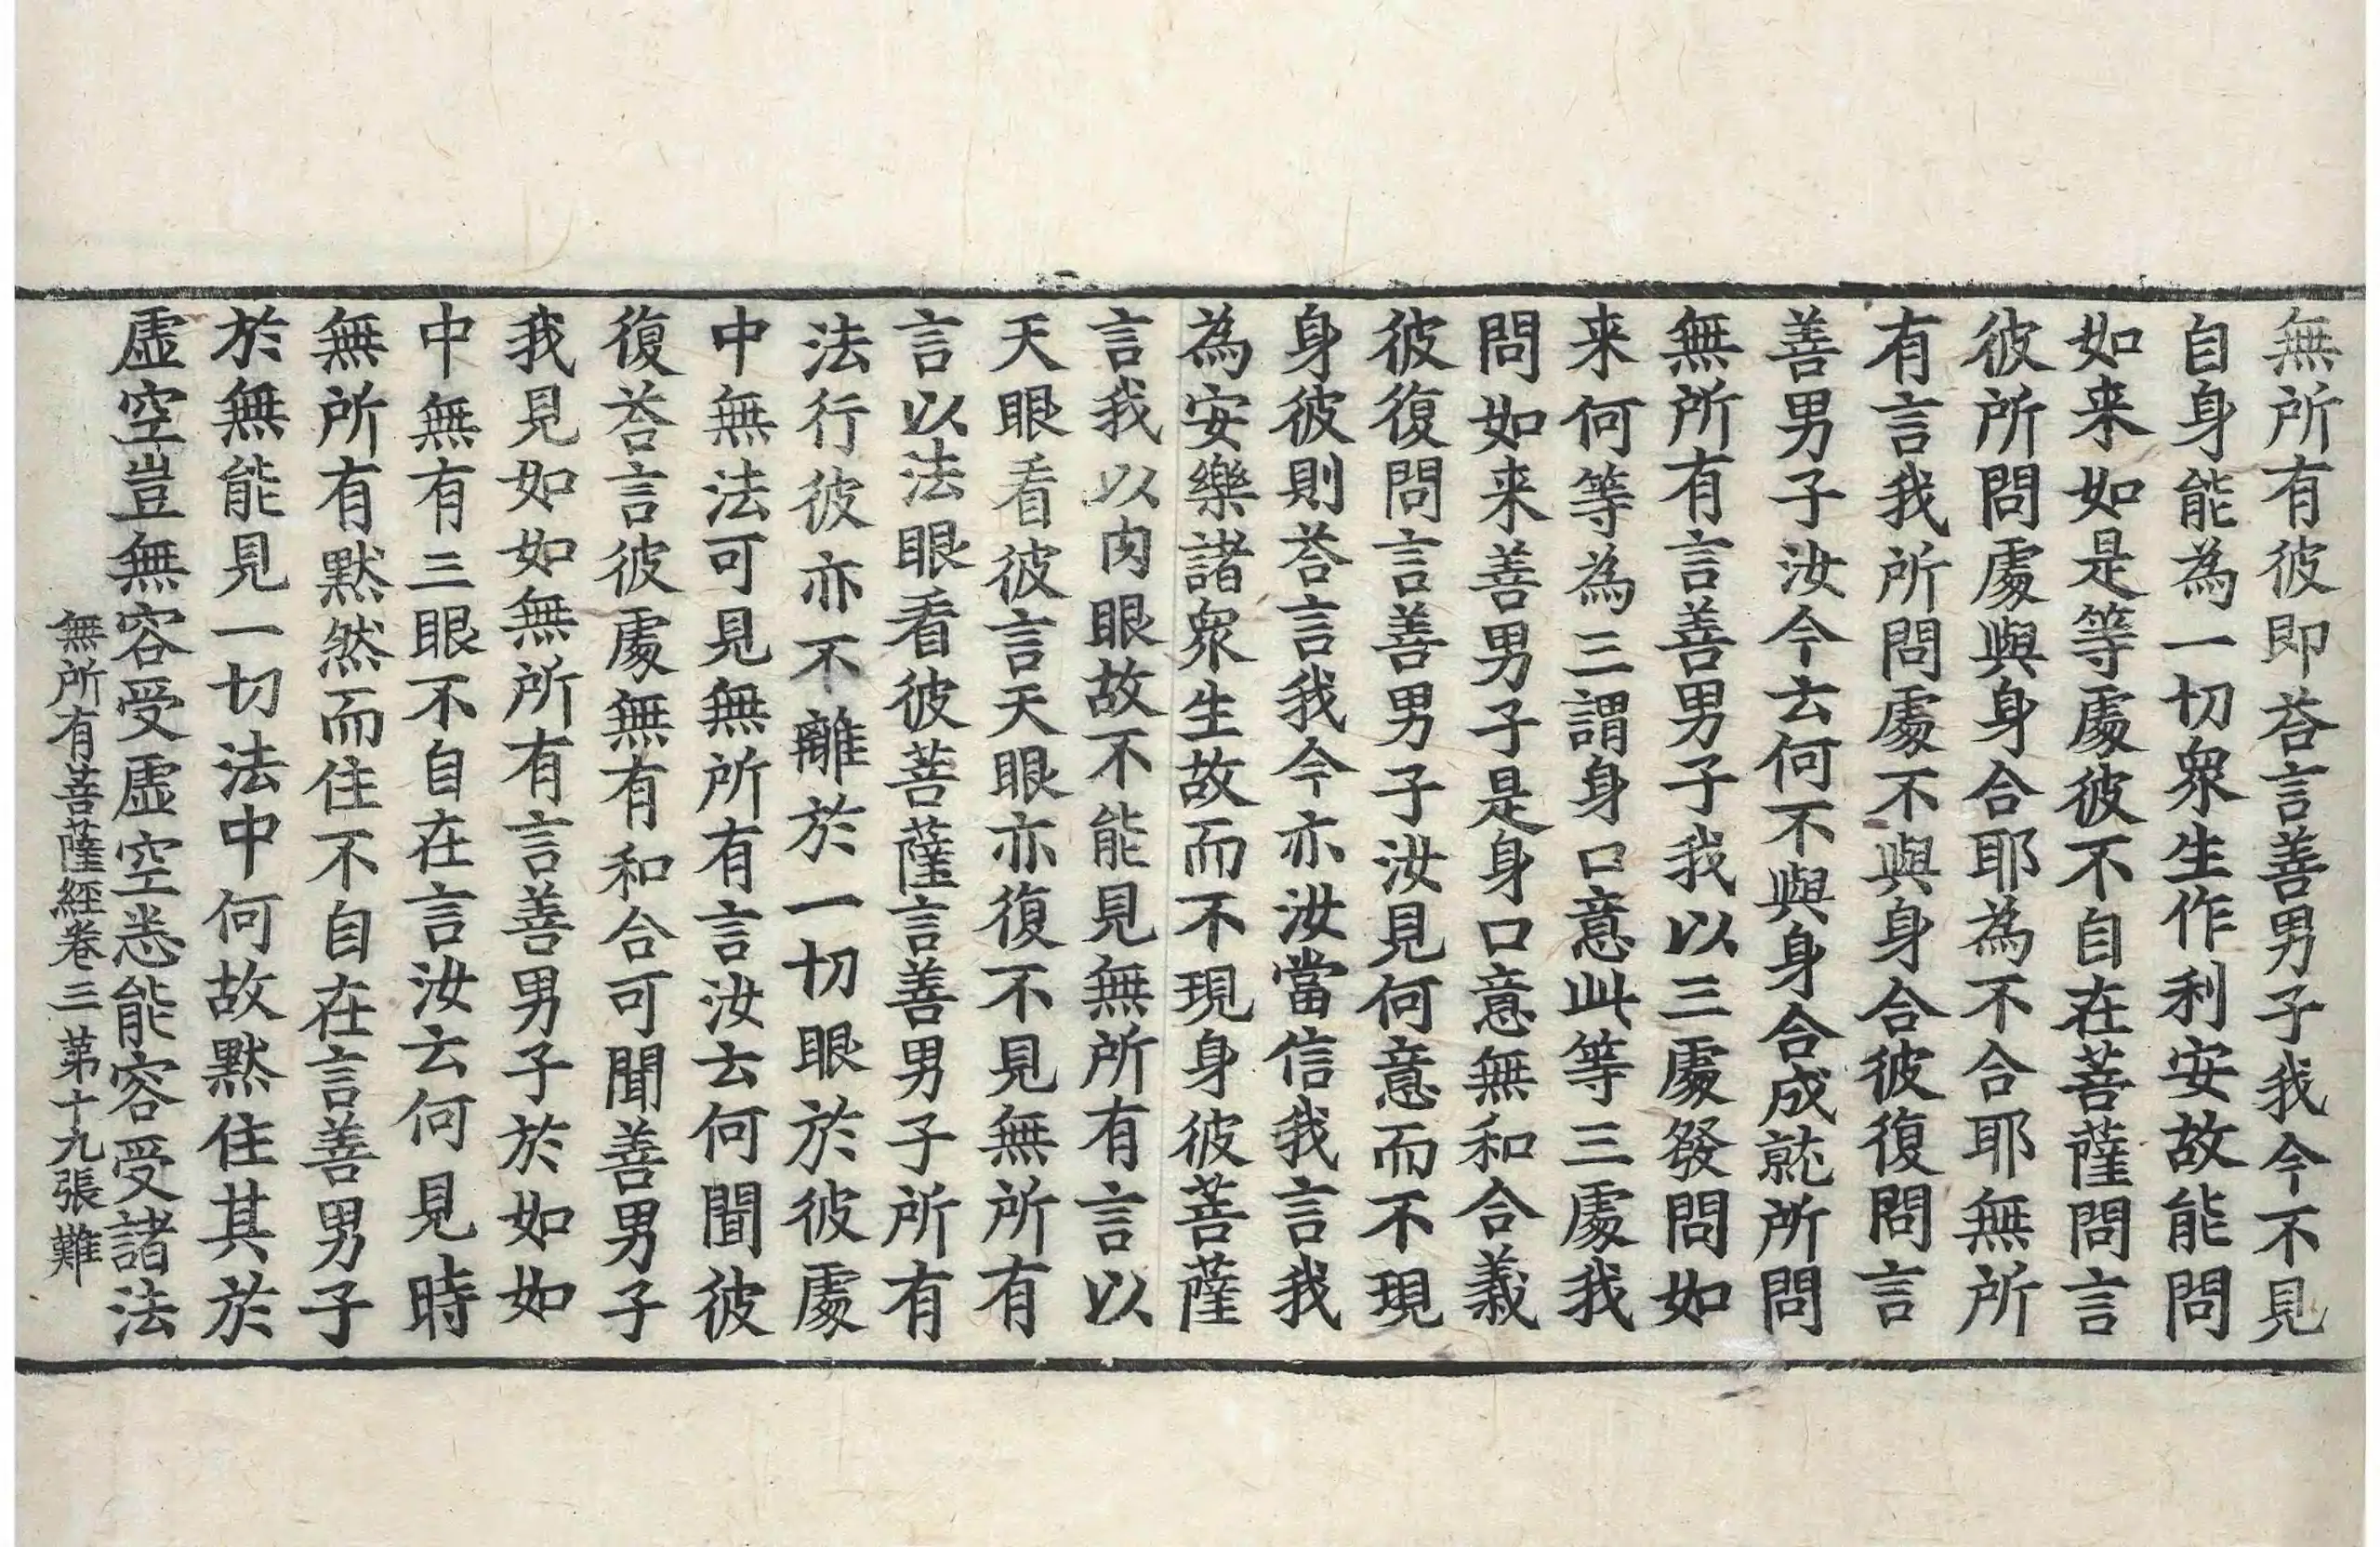 無所有彼即荅言善男子我今不見
自身能為一切衆生作利安故能問
如来如是等處彼不自在菩薩問言
彼所問處與身合耶為不合耶無所
有言我所問處不與身合彼復問言
善男子汝今云何不與身合成就所問
無所有言善男子我以三處發問如
来何等為三謂身口意此等三處我
問如来善男子是身口意無和合義
彼復問言善男子汝見何意而不現
身彼則荅言我今亦汝當信我言我
為安樂諸衆生故而不現身彼菩薩
言我以肉眼故不能見無所有言以
天眼看彼言天眼亦復不見無所有
言以法眼看彼菩薩言善男子所有
法行彼亦不離於一切眼於彼處
中無法可見無所有言汝云何聞彼
復荅言彼處無有和合可聞善男子
我見如如無所有言善男子於如如
中無有三眼不自在言汝云何見時
無所有默然而住不自在言善男子
於無能見一切法中何故默住其於
虛空豈無容受虛空悉能容受諸法
無所有菩薩經卷三 第十九張 難